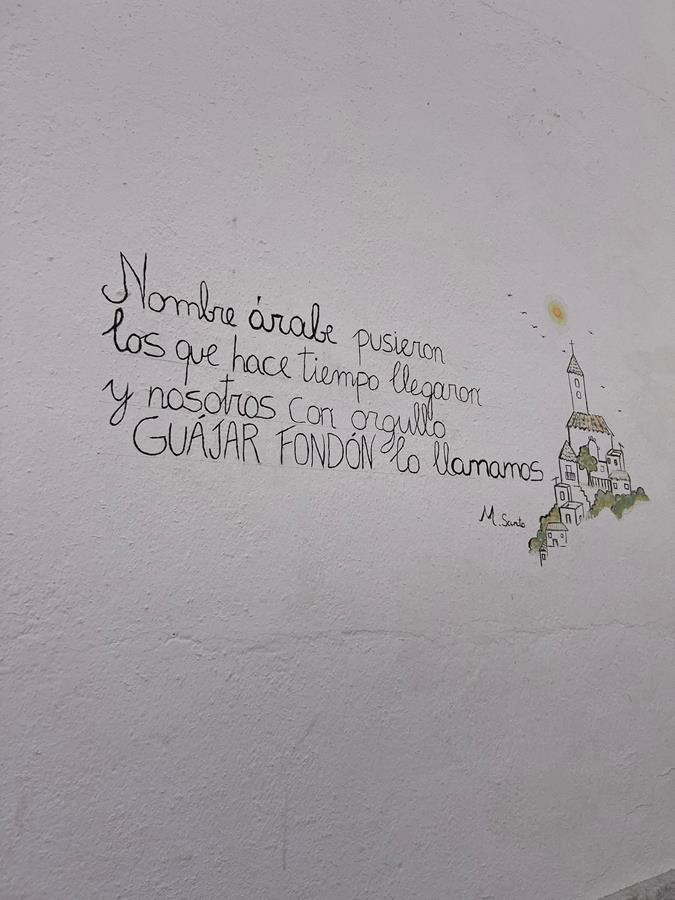 Nombre árabe pusieron
los que hace tiempo llegaron
y nosotros con orgullo
GUÁJAR FONDÓN lo llamamos
M. Santo